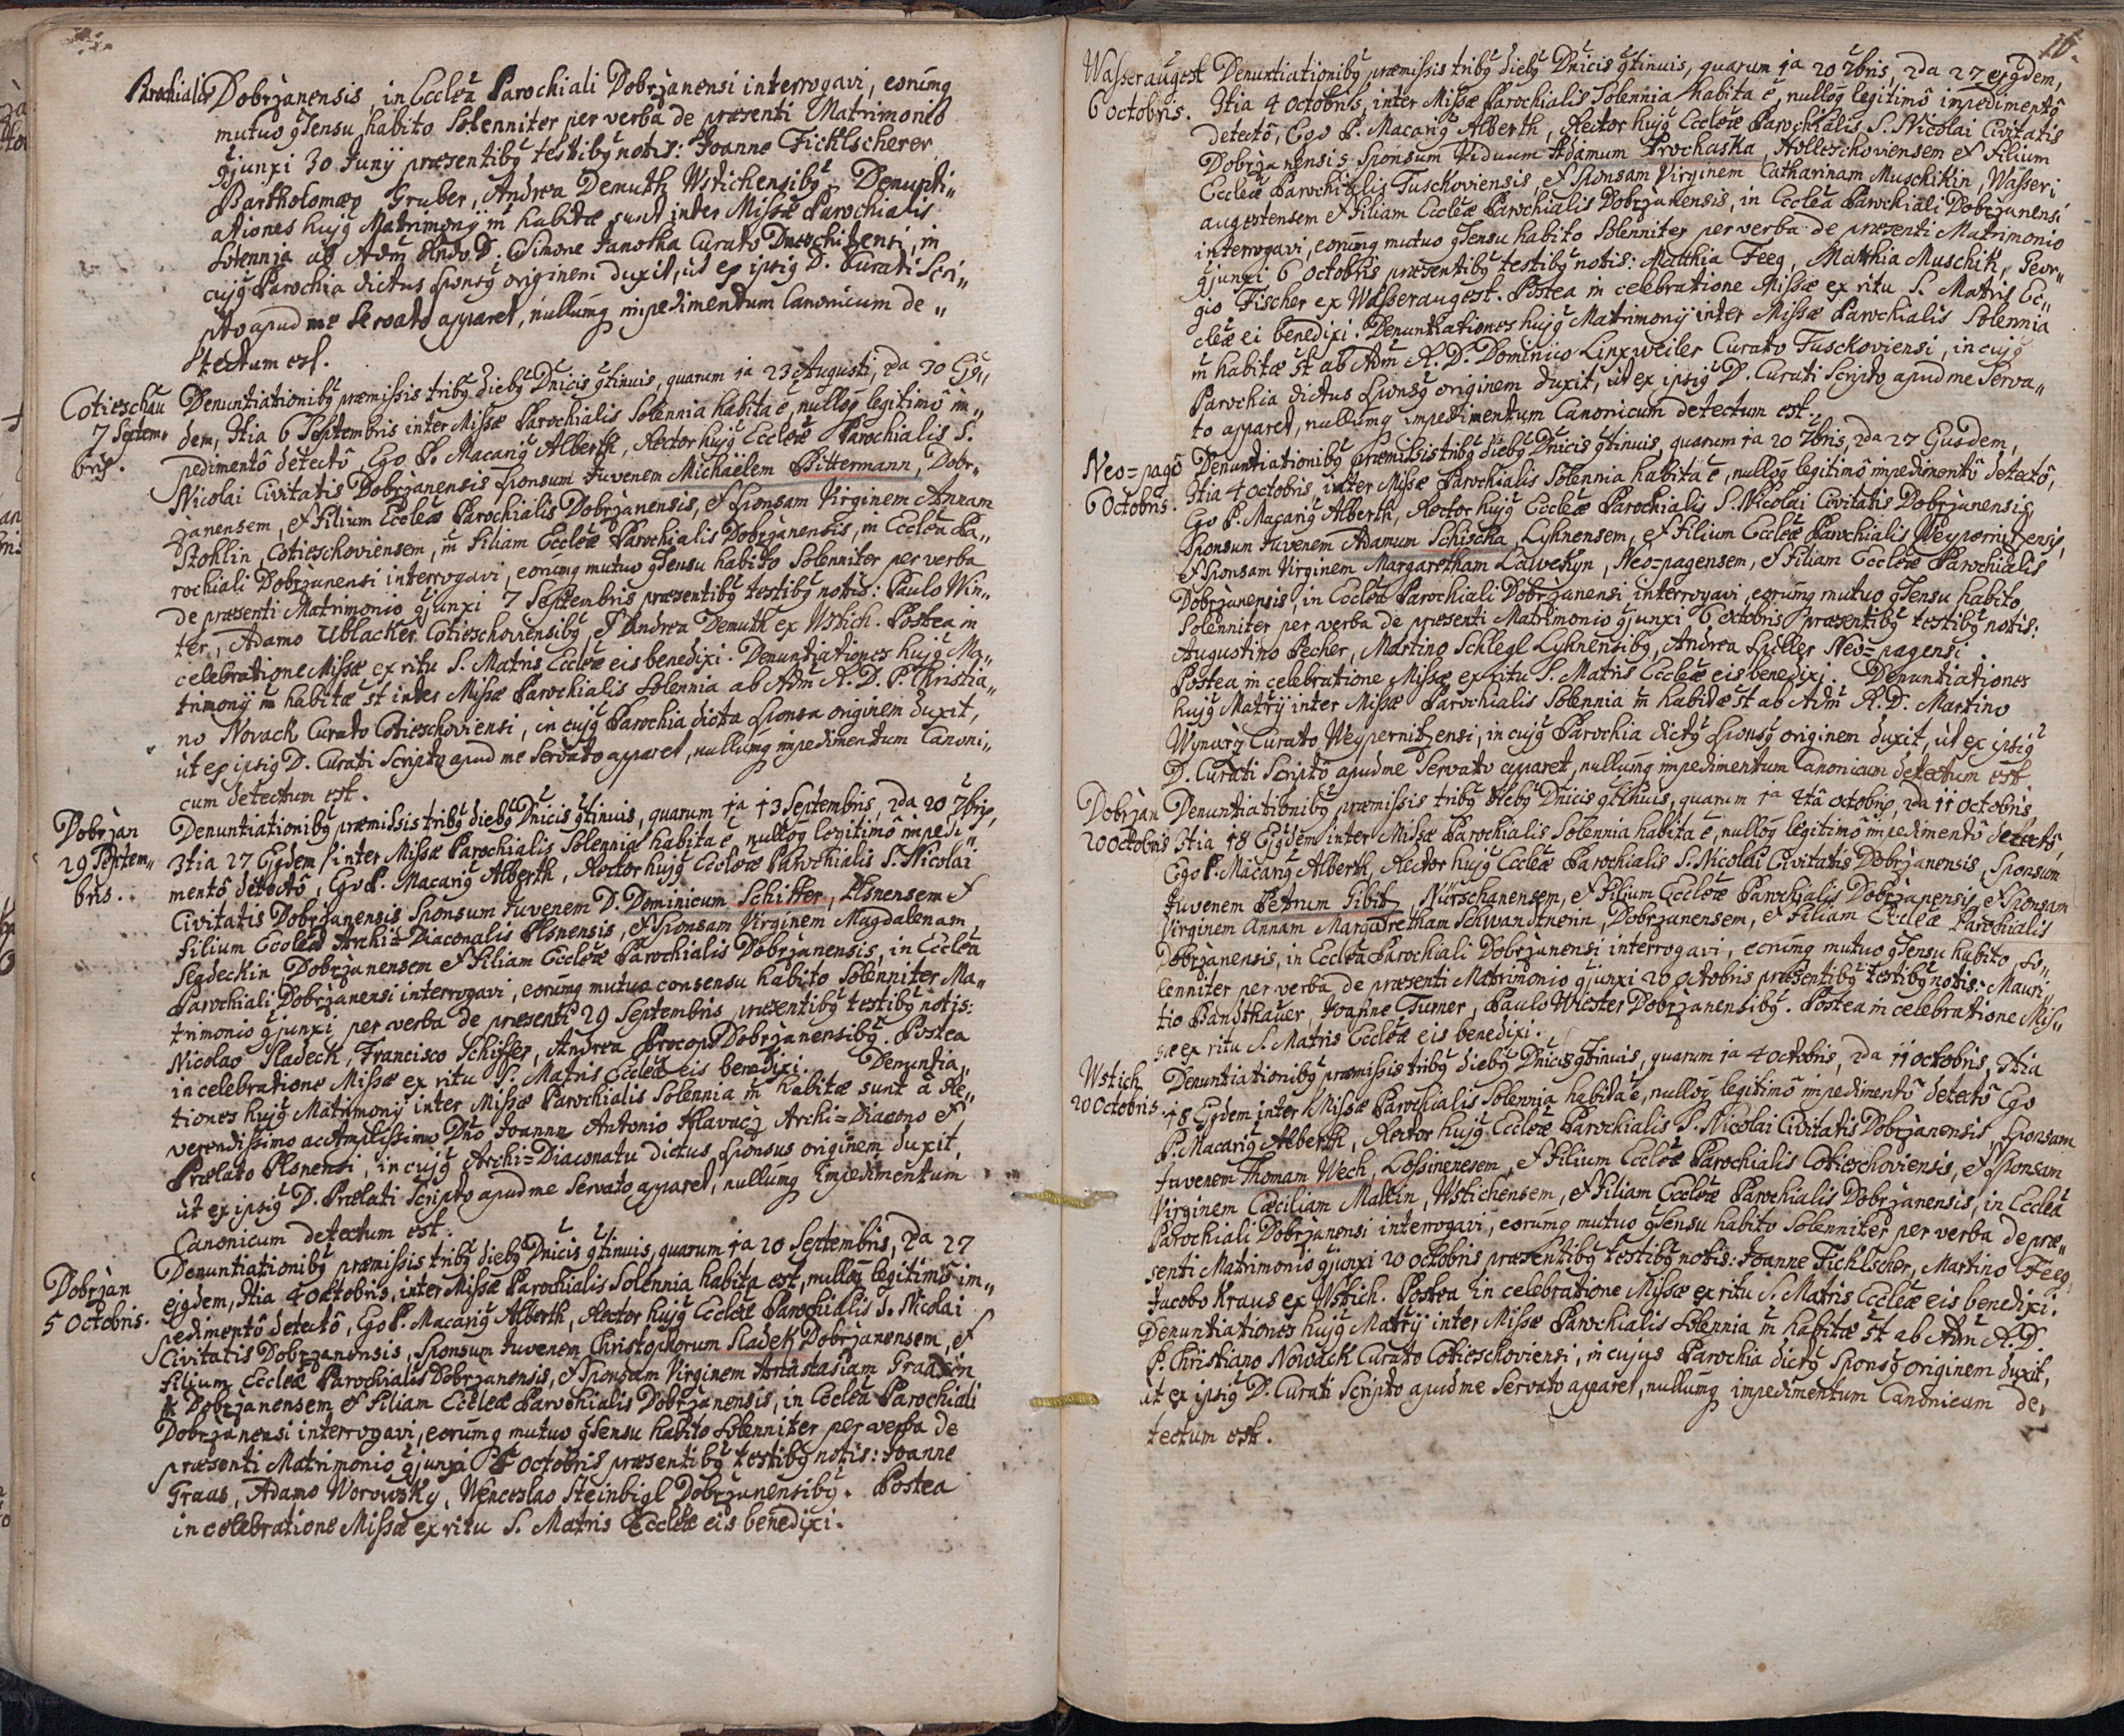 Parochialis Dobrzanensis, in Eccleã Parochiali Dobrzanensi interrogavi, eorumq
mutuo gsensu habito Solenniter per verba de præsenti Matrimonio
gjunxi 30 Junij præsentibg testibg notis: Joanne Fichlscherer
Bartholomæo Gruber, Andrea Demuth Wstichensibg. Denunti„
ationes hujg Matrimonij in habitæ sunt inter Missæ Parochialis
Solennia ab Adm Rndo D. Simone Janotka Curato Dneschitzensi, in
cujg Parochia dictus sponsg originem duxit, ut ex ipsig D. Curati Scri„
pto apud me servato apparet, nullumq impedimentum Canonicum de„
tectum est.
Cotieschau Denuntiationibg præmissis tribg diebg Dnicis gtinuis, quarum 1a 23 Augusti, 2da 30 Ejg„
7 Septem„ dem, 3tia 6 Septembris inter Missæ Parochialis Solennia habita ē, nullog legitimô im„
bris. pedimentô detectô, Ego P. Macarig Alberth, Rector hujg Eccleæ Parochialis S.
Nicolai Civitatis Dobrzanensis sponsum Juvenem Michaëlem Pittermann, Dobr„
zanensem, et Filium Eccleæ Parochialis Dobrzanensis, et sponsam Virginem Annam
Stohlin, Cotieschoviensem, m Filiam Eccleæ Parochialis Dobrzanensis, in Eccleã Pa„
rochiali Dobrzanensi interrogavi, eorumq mutuo gsensu habito Solenniter per verba
de præsenti Matrimonio gjunxi 7 Septembris præsentibg testibg notis: Paulo Win„
ter, Adamo Ublacker Cotieschoviensibg, et Andrea Demuth ex Wstich. Postea in
celebratione Missæ ex ritu S. Matris Eccleæ eis benedixi. Denuntiationes hujg Ma„
trimonij m habitæ st inter Missæ Parochialis Solennia ab Adm R. D. P. Christia„
no Novack Curato Cotieschoviensi, in cujg Parochia dicta sponsa originem duxit,
ut ex ipsig D. Curati Scripto apud me servato apparet, nullumq impedimentum Canoni„
cum detectum est.
Dobrzan Denuntiationibg præmissis tribg diebg Dnicis gtinuis, quarum 1a 13 Septembris, 2da 20 7bris,
29 Septem„ 3tia 27 Ejgdem inter Missæ Parochialis Solennia habita ē nullog legitimô impedi„
bris. mentô detectô, Ego P. Macarig Alberth, Rector hujg Eccleæ Parochialis S. Nicolai
Civitatis Dobrzanensis Sponsum Juvenem D. Dominicum Schiffer, Plsnensem et
Filium Eccleæ Archi=Diaconalis Plsnensis, et Sponsam Virginem Magdalenam
Sladeckin Dobrzanensem et Filiam Eccleæ Parochialis Dobrzanensis, in Eccleã
Parochiali Dobrzanensi interrogavi, eorumq mutuo consensu habito Solenniter Ma„
trimonio gjunxi per verba de præsenti 29 Septembris præsentibg testibg notis:
Nicolao Sladeck, Francisco Schiffer, Andrea Procop Dobrzanensibg. Postea
in celebratione Missæ ex ritu S. Matris Eccleæ eis benedixi. Denuntia„
tiones hujg Matrimonij inter Missæ Parochialis Solennia m habitæ sunt â Re„
verendissimo ac Amplissimo Dño Joanne Antonio Hlavacz Archi=Diacono et
Prælato Plsnensi, in cujg Archi=Diaconatu dictus sponsus originem duxit,
ut ex ipsig D. Prælati Scripto apud me servato apparet, nullumq impedimentum
Canonicum detectum est.
Dobrzan Denuntiationibg præmissis tribg diebg Dnicis gtinuis, quarum 1a 20 Septembris, 2da 27
5 Octobris. ejgdem, 3tia 4 octobris, inter Missæ Parochialis Solennia habita est, nullog legitimô im„
pedimentô detectô, Ego P. Macarig Alberth, Rector hujg Eccleæ Parochialis S. Nicolai
Civitatis Dobrzanensis, Sponsum Juvenem Christophorum Sladek Dobrzanensem, et
Filium Eccleæ Parochialis Dobrzanensis, et Sponsam Virginem Anastasiam Graasin
Dobrzanensem et Filiam Eccleæ Parochialis Dobrzanensis, in Eccleã Parochiali
Dobrzanensi interrogavi, eorumq mutuo gsensu habito Solenniter per verba de
præsenti Matrimonio gjunxi 5 octobris præsentibg testibg notis: Joanne
Graas, Adamo Worowsky, Wenceslao Steinbigl Dobrzanensibg. Postea
in celebratione Missæ ex ritu S. Matris Eccleæ eis benedixi.
Wasseraugest Denuntiationibg præmissis tribg diebg Dnicis gtinuis, quarum 1a 20 7bris, 2da 27 ejgdem,
6 octobris. 3tia 4 octobris, inter Missæ Parochialis Solennia habita ē, nullog legitimô impedimentô
detectô, Ego P. Macarig Alberth, Rector hujg Eccleæ Parochialis S. Nicolai Civitatis
Dobrzanensis Sponsum Viduum Adamum Prochaska, Holleschoviensem et Filium
Eccleæ Parochialis Tuschoviensis, et Sponsam Virginem Catharinam Muschikin, Wasser„
augestensem et Filiam Eccleæ Parochialis Dobrzanensis, in Eccleã Parochiali Dobrzanensi
interrogavi, eorumq mutuo gsensu habito Solenniter per verba de præsenti Matrimonio
gjunxi 6 octobris præsentibg testibg notis: Matthia Feeg, Matthia Muschik, Geor„
gio Fischer ex Wasseraugest. Postea in celebratione Missæ ex ritu S. Matris Ec„
cleæ ei benedixi. Denuntiationes hujg Matrimonij inter Missæ Parochialis Solennia
m habitæ st ab Adm R. D. Dominico Linxweiler Curato Tuschoviensi, in cujg
Parochia dictus sponsg originem duxit, ut ex ipsig D. Curati Scripto apud me serva„
to apparet, nullumq impedimentum Canonicum detectum est.
Neo=pagô Denuntiationibg præmissis tribg diebg Dnicis gtinuis, quarum 1a 20 7bris, 2da 27 Ejusdem,
6 Octobris. 3tia 4 octobris, inter Missæ Parochialis Solennia habita ē, nullog legitimô impedimentô detectô,
Ego P. Macarig Alberth, Rector hujg Eccleæ Parochialis S. Nicolai Civitatis Dobrzanensis,
Sponsum Juvenem Adamum Schischa, Lyhnensem, et Filium Eccleæ Parochialis Weypernitzensis,
et Sponsam Virginem Margaretham Lalvekyn, Neo=pagensem, et Filiam Eccleæ Parochialis
Dobrzanensis, in Eccleã Parochiali Dobrzanensi interrogavi, eorumq mutuo gsensu habito
Solenniter per verba de præsenti Matrimonio gjunxi 6 octobris præsentibg testibg notis:
Augustino Pecher, Martino Schlegl Lyhnensibg, Andrea Spiller Neo=pagensi.
Postea in celebratione Missæ ex ritu S. Matris Eccleæ eis benedixi. Denuntiationes
hujg Matrij inter Missæ Parochialis Solennia m habitæ st ab Adm R. D. Martino
Wynarz Curato Weypernitzensi, in cujg Parochia dictg sponsg originem duxit, ut ex ipsig
D. Curati Scriptô apud me servato apparet, nullumq impedimentum Canonicum detectum est.
Dobrzan Denuntiationibg præmissis tribg diebg Dnicis gtinuis, quarum 1a 4tâ octobris, 2da 11 octobris
20 octobris 3tia 18 Ejgdem inter Missæ Parochialis Solennia habita ē, nullog legitimô impedimentô detectô,
Ego P. Macarig Alberth, Rector hujg Eccleæ Parochialis S. Nicolai Civitatis Dobrzanensis, Sponsum
Juvenem Petrum Gibitz, Nürschanensem, et Filium Eccleæ Parochialis Dobrzanensis, et Sponsam
Virginem Annam Margaretham Schwandtnerin, Dobrzanensem, et Filiam Eccleæ Parochialis
Dobrzanensis, in Eccleã Parochiali Dobrzanensi interrogavi, eorumq mutuo gsensu habito, So„
lenniter per verba de præsenti Matrimonio gjunxi 20 octobris præsentibg testibg notis: Mauri„
tio Bandthauer, Joanne Turner, Paulo Wuester Dobrzanensibg. Postea in celebratione Mis„
sæ ex ritu S. Matris Eccleæ eis benedixi.
Wstich Denuntiationibg præmissis tribg diebg Dnicis gtinuis, quarum 1a 4 octobris, 2da 11 octobris, 3tia
20 Octobris. 18 Ejgdem inter Missæ Parochialis Solennia habita ē, nullog legitimô impedimentô detectô Ego
P. Macarig Alberth, Rector hujg Eccleæ Parochialis S. Nicolai Civitatis Dobrzanensis, Sponsum
Juvenem Thomam Wech, Lossinenesem, et Filium Eccleæ Parochialis Cotieschoviensis, et Sponsam
Virginem Cæciliam Mallin, Wstichensem, et Filiam Eccleæ Parochialis Dobrzanensis, in Eccleã
Parochiali Dobrzanensi interrogavi, eorumq mutuo gsensu habito Solenniter per verba de præ„
senti Matrimonio gjunxi 20 octobris præsentibg testibg notis: Joanne Fichlscher, Martino Feeg,
Jacobo Kraus ex Wstich. Postea in celebratione Missæ ex ritu S. Matris Eccleæ eis benedixi.
Denuntiationes hujg Matrij inter Missæ Parochialis Solennia m habitæ st ab Adm R. D.
P. Christiano Nowack Curato Cotieschoviensi, in cujus Parochia dictg Sponsg originem duxit,
ut ex ipsig D. Curati Scripto apud me servato apparet, nullumq impedimentum Canonicum de„
tectum est.